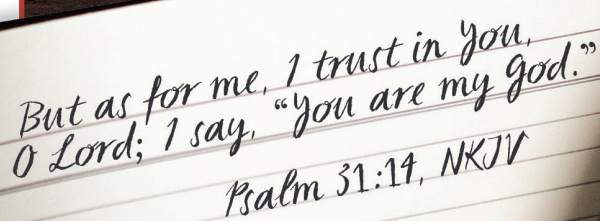 But as for me, I trust in You,
O Lord; I say, “You are my God.”
Psalm 31:14, NKJV